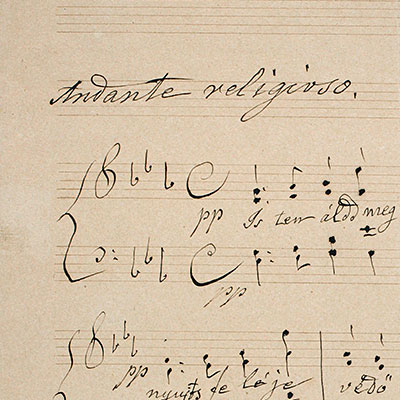 Andante religioso.
pp Is ten áldd meg
pp
pp nyujts fe lé je védő